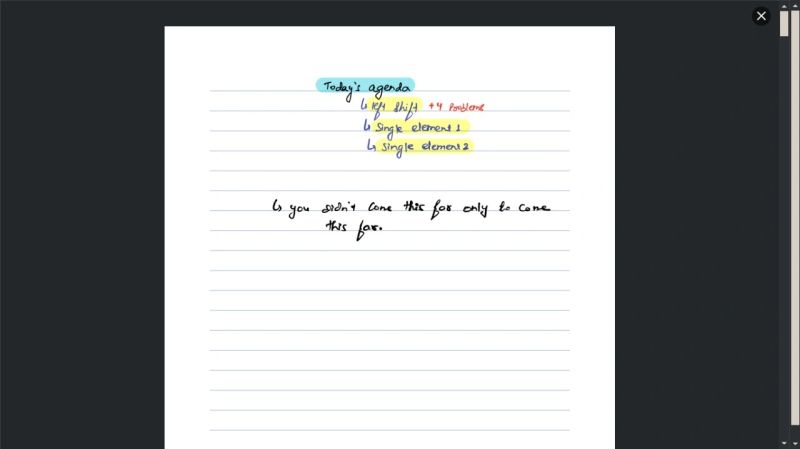 Today's agenda
↳ left shift +4 Problems
↳ Single element 1
↳ Single element 2
↳ you didn't come this far only to come
this far.